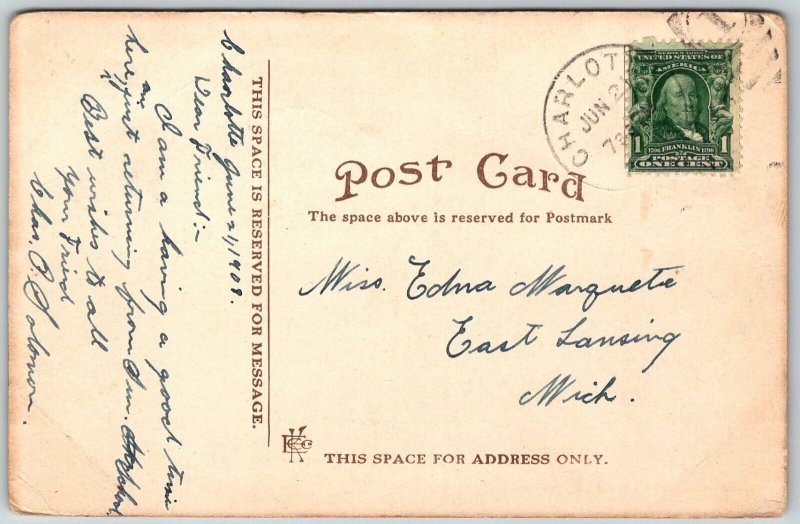 Charlotte June 21, 1908.
Dear Friend:-
I am a having a good time
here, am just returning from Sun. School
Best wishes to all
Your Friend
Chas. P. Solomon.
THIS SPACE IS RESERVED FOR MESSAGE.
CHARLOT
JUN 21
SERIES 1902
UNITED STATES OF
AMERICA
1 1706 FRANKLIN 1790 1
POSTAGE
ONE CENT
Post Card
The space above is reserved for Postmark
Miss. Edna Marquete
East Lansing
Mich.
THIS SPACE FOR ADDRESS ONLY.